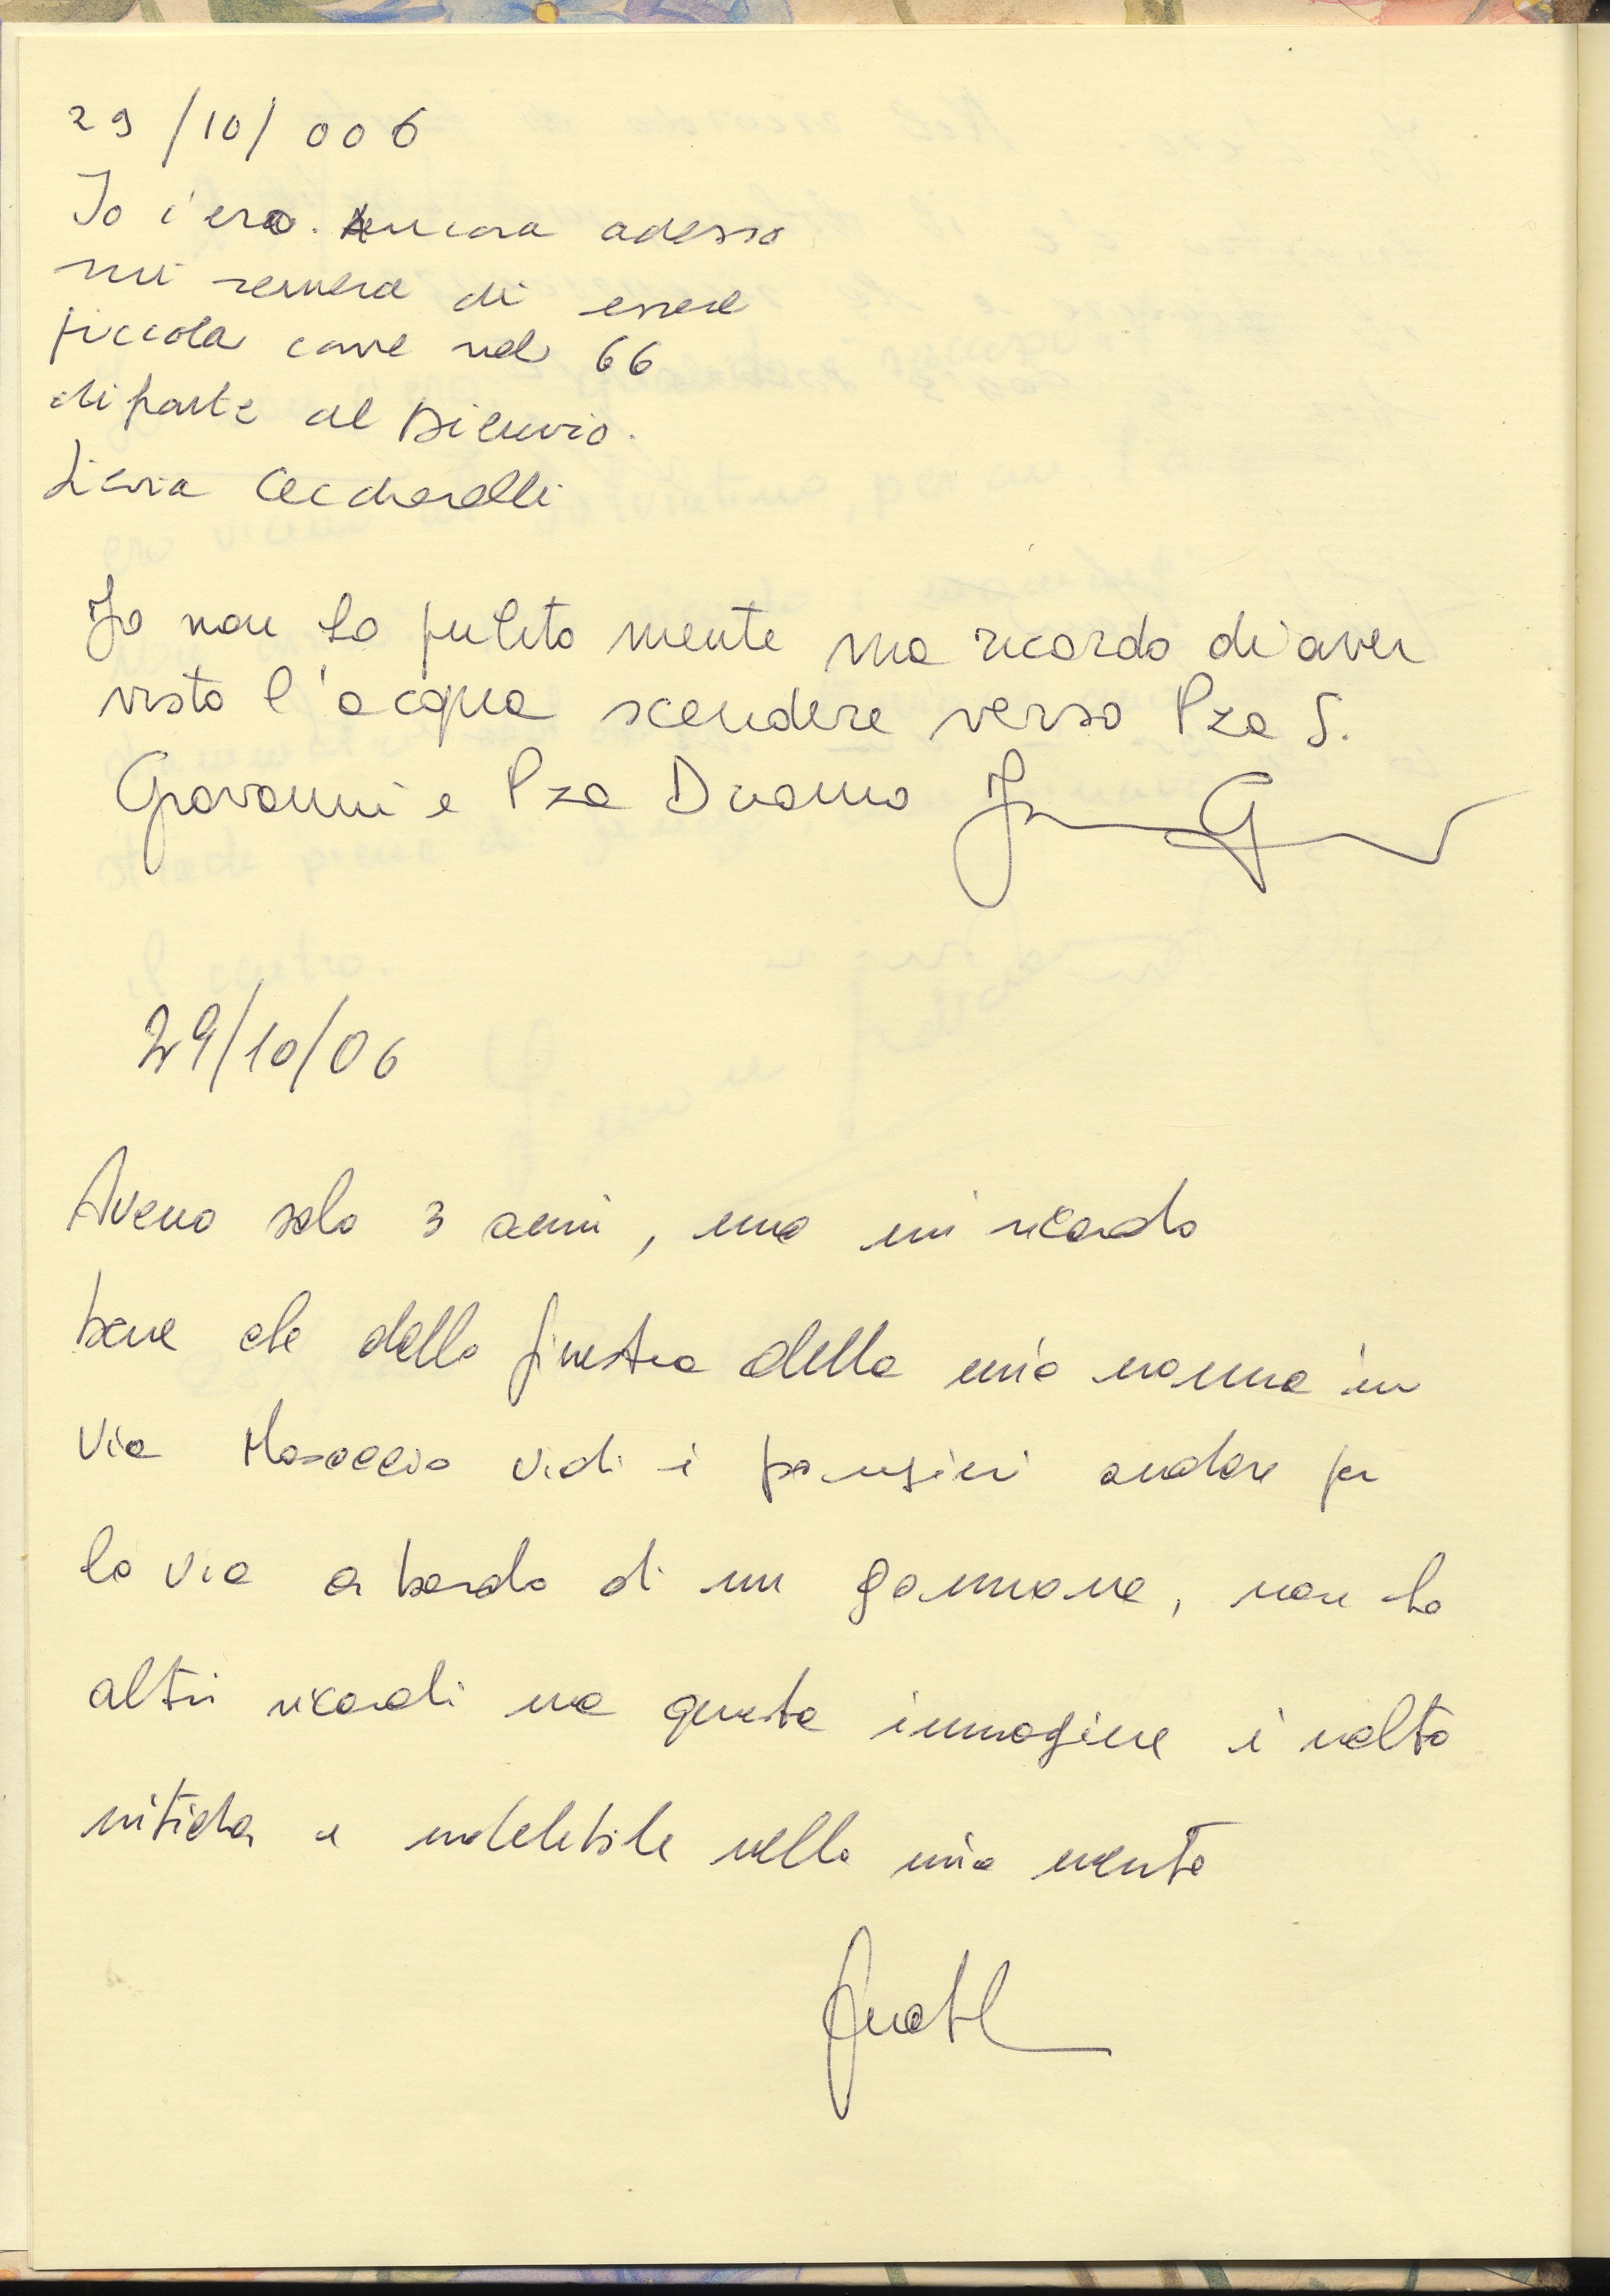 29/10/006
Io c'ero. Ancora adesso
mi sembra di essere
piccola come nel 66
di fronte al Diluvio.
Licia Ceccherelli
Io non ho pulito niente ma ricordo di aver
visto l'acqua scendere verso Pza S.
Giovanni e Pza Duomo
29/10/06
Avevo solo 3 anni, ma mi ricordo
bene che dalla finestra della mia nonna in
Via Masaccio vidi i pompieri andare per
la via a bordo di un gommone, non ho
altri ricordi ma questa immagine è molto
nitida e indelebile nella mia mente